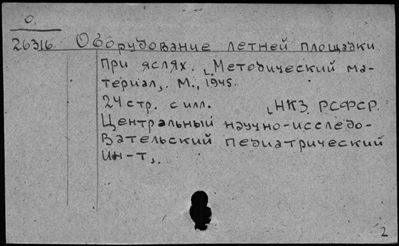 О.
26316 Оборудование летней площадки
при яслях. Методический ма-
териал,. М., 1945.
24 стр. с илл. [НКЗ РСФСР.
Центральный научно-исследо-
вательский педиатрический
ин-т,.
2